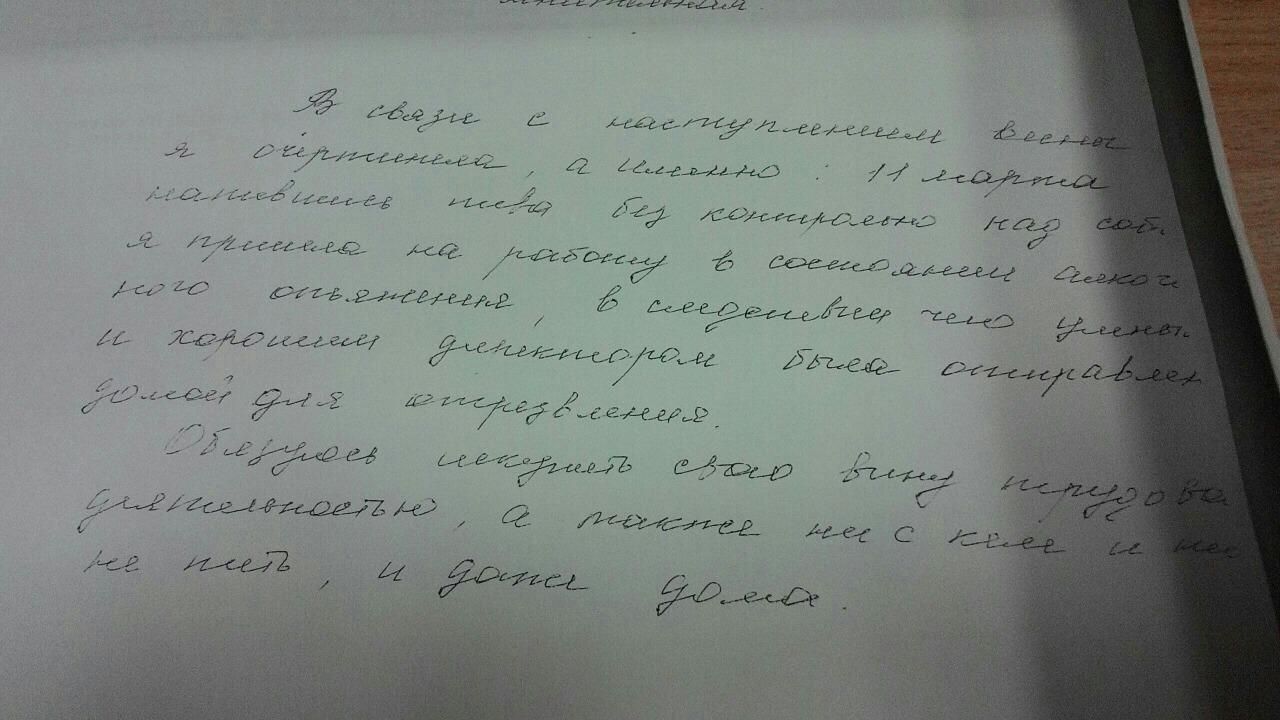 В связи с наступлением весны
я очертинела, а именно: 11 марта
напившись пива без контрольно над соб
я пришла на работу в состоянии алког
ного опьянения, в следствии чего умны
и хорошим директором была отправлен
домой для отрезвления.
Обязуюсь искупить свою вину трудова
деятельностью, а также ни с кем и ни
не пить, и даже дома.